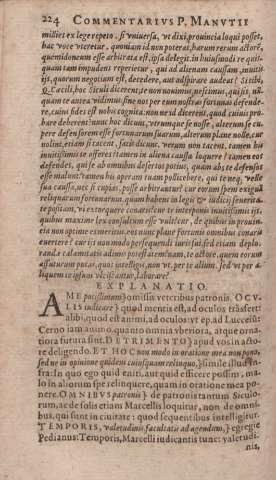 224 COMMENTARIVS P. MANVTII
milliet ex lege repeto. si vniuersa, vt dixi, prouincia loqui posset,
hac voce vteretur. quoniam id non poterat, harum rerum actorē,
quem idoneum esse arbitrata est, ipsa delegit. in huiusmodi re quis-
quam tam impudens reperietur, qui ad alienam causam, inuitis
ijs, quorum negotium est, accedere, aut adspirare audeat? Si tibi,
Q. Cæcili, hoc Siculi dicerent; te non nouimus, nescimus, qui sis, nū-
quam te antea vidimus. sine nos per eum nostras fortunas defende-
re, cuius fides est nobis cognita. non ne id dicerent, quod cuiuis pro-
bare deberent? nunc hoc dicunt, vtrumque se nosse, alterum se cu-
pere defensorem esse fortunarum suarum, alterum plane nolle. cur
nolint, etiam si tacent, satis dicunt. verum non tacent. tamen his
inuitissimis te offeres? tamen in aliena caussa loquere? tamen eos
defendes, qui se ab omnibus desertos potius, quam abs te defensos
esse malunt? tamen his operam tuam pollicebere, qui te neq. velle
sua caussa, nec si cupias, posse arbitrantur? cur eorum spem exiguā
reliquarum fortunarum, quam habent in legis & iudicij seuerita-
te positam, vi extorquere conaris? cur te interponis inuitissimis ijs,
quibus maxime lex consultum esse vult? cur, de quibus in prouin-
cia non optime es meritus, eos nunc plane fortunis omnibus conaris
euertere? cur ijs non modo persequendi iuris sui, sed etiam deplo-
randæ calamitatis adimis potestatem? nam, te actore, quem eorum
affuturum putas, quos intelligis, non vt per te alium, sed vt per a-
liquem te ipsum vlciscantur, laborare?
EXPLANATIO.
A ME potissimum} omissis veteribus patronis. OCV-
LIS iudicare} quod mentis est, ad oculos trāsfert:
alibi, quod est animi, ad oculos: vt ep. ad Lucceiū:
Cerno iam animo, quanto omnia vberiora, atque orna-
tiora futura sint. DETRIMENTO} apud vos in acto-
re deligendo. ET HOC non modo in oratione mea non ponā,
sed ne in opinione quidem cuiusquam relinquo,} simile illud in-
fra: In quo ego quid eniti, aut quid efficere possim, ma-
lo in aliorum spe relinquere, quam in oratione mea po-
nere. OMNIBVS patronis} de patronis tantum Siculo-
rum, ac de solis etiam Marcellis loquitur, non de omni-
bus, qui sunt in ciuitate: quod sequentibus intelligitur.
TEMPORIS, valetudinis. facultatis ad agendum,} egregie
Pedianus: Temporis, Marcelli iudicantis tunc: valetudi-
nis,